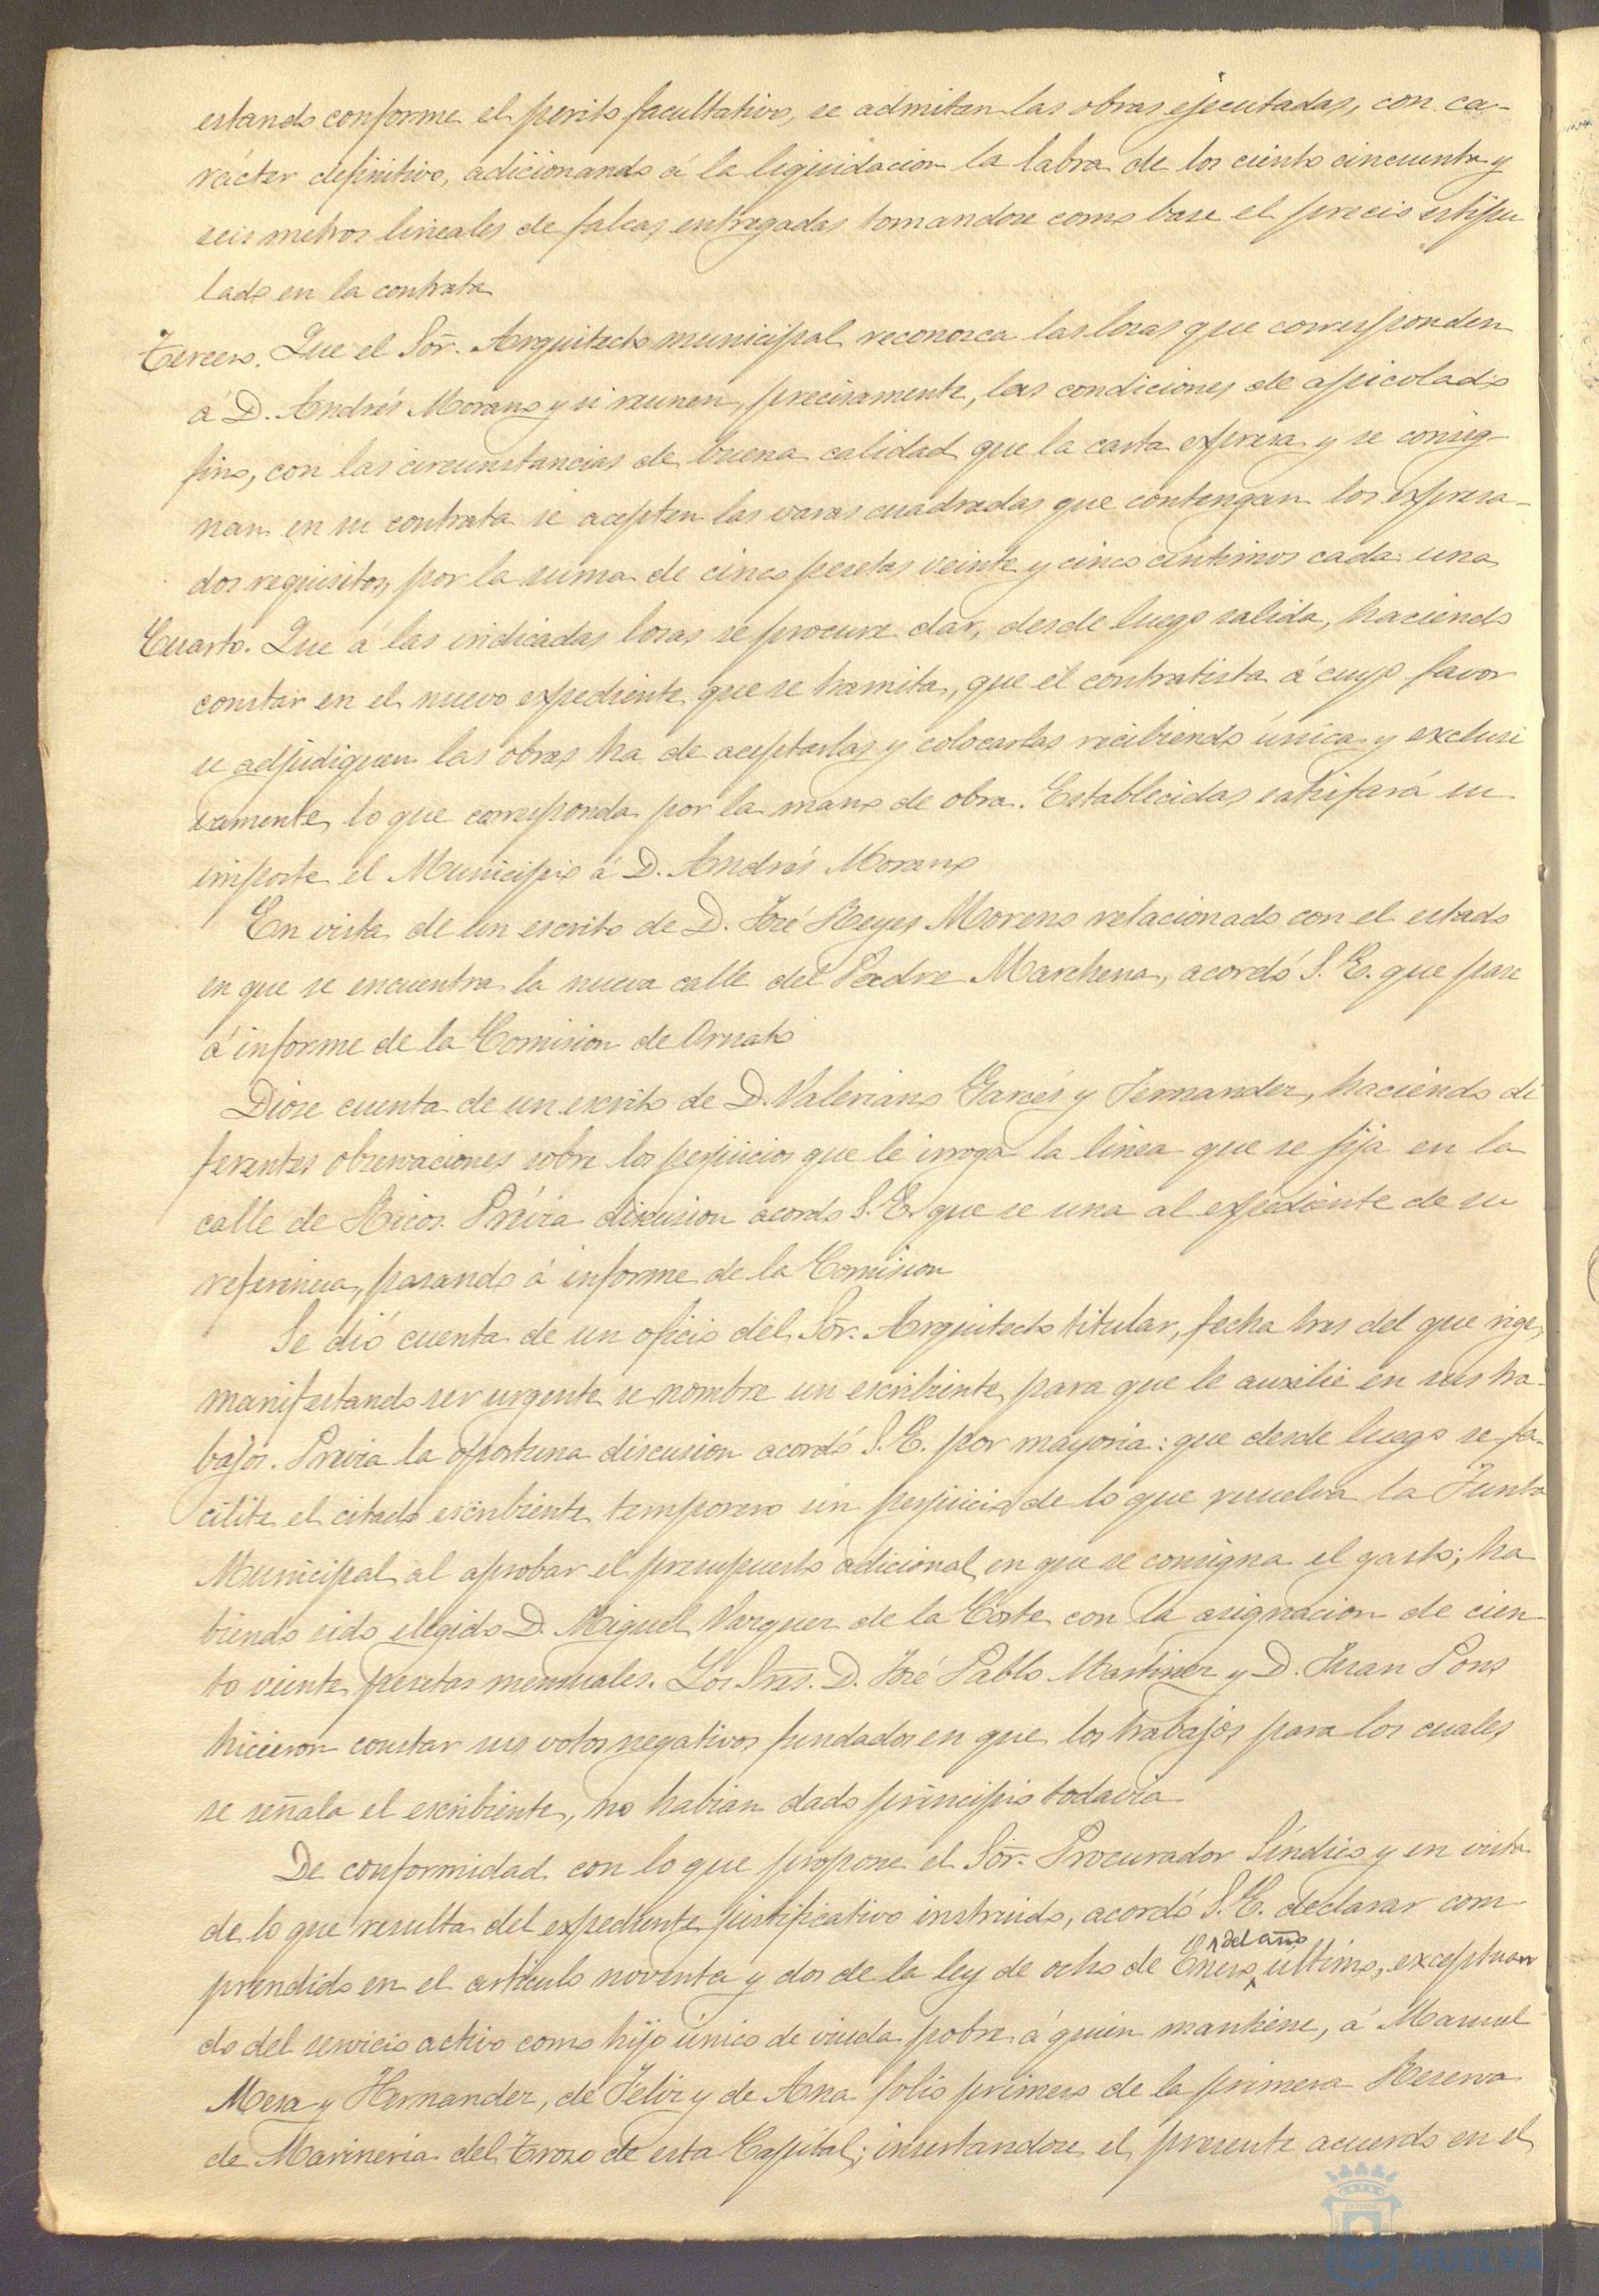 estando conforme el perito facultativo, se admitan las obras ejecutadas, con ca-
rácter definitivo, adicionando á la liquidacion la labra de los ciento cincuenta y
seis metros lineales de falcas entregadas tomandose como base el precio estipu
lado en la contrata
Tercero. Que el Sōr. Arquitecto municipal reconozca las losas que corresponden
á D. Andrés Morano y si reunen, precisamente, las condiciones de apicolado
fino, con las circunstancias de buena calidad que la carta expresa y se consig-
nan en su contrata se acepten las varas cuadradas que contengan los expresa-
dos requisitos, por la suma de cinco pesetas veinte y cinco centimos cada una
Cuarto. Que á las indicadas losas se procure dar, desde luego salida, haciendo
constar en el nuevo expediente que se tramita, que el contratista á cuyo favor
se adjudiquen las obras ha de aceptarlas y colocarlas recibiendo única y exclusi
vamente, lo que corresponda por la mano de obra. Establecidas satisfará su
importe el Municipio á D. Andrés Morano
En vista de un escrito de D. José Reyes Moreno relacionado con el estado
en que se encuentra la nueva calle del Padre Marchena, acordó S. E. que pase
á informe de la Comision de Ornato
Diose cuenta de un escrito de D. Valeriano Garcés y Fernandez, haciendo di
ferentes observaciones sobre los perjuicios que le irroga la linea que se fija en la
calle de Ricos. Prévia discusion acordó S. E. que se una al expediente de su
referencia, pasando á informe de la Comision
Se dió cuenta de un oficio del Sōr. Arquitecto titular, fecha tres del que rige,
manifestando ser urgente se nombre un escribiente para que le auxilie en sus tra-
bajos. Previa la oportuna discusion acordó S. E. por mayoria: que desde luego se fa-
cilite el citado escribiente temporero sin perjuicio de lo que resuelva la Junta
Municipal al aprobar el presupuesto adicional en que se consigna el gasto; ha
biendo sido elegido D. Miguel Vazquez de la Corte con la asignacion de cien
to veinte pesetas mensuales. Los Sres. D. José Pablo Martinez y D. Juan Pons
hicieron constar sus votos negativos fundados en que los trabajos para los cuales
se señala el escribiente, no habian dado principio todavia
De conformidad con lo que propone el Sōr. Procurador Síndico y en vista
de lo que resulta del expediente justificativo instruido, acordó S. E. declarar com
prendido en el artículo noventa y dos de la ley de ocho de Enero del año último, exceptuan
do del servicio activo como hijo único de viuda pobre á quien mantiene, á Manuel
Mesa y Hernandez, de Felix y de Ana folio primero de la primera Reserva
de Marineria del Trozo de esta Capital; insertandose el presente acuerdo en el
HUELVA